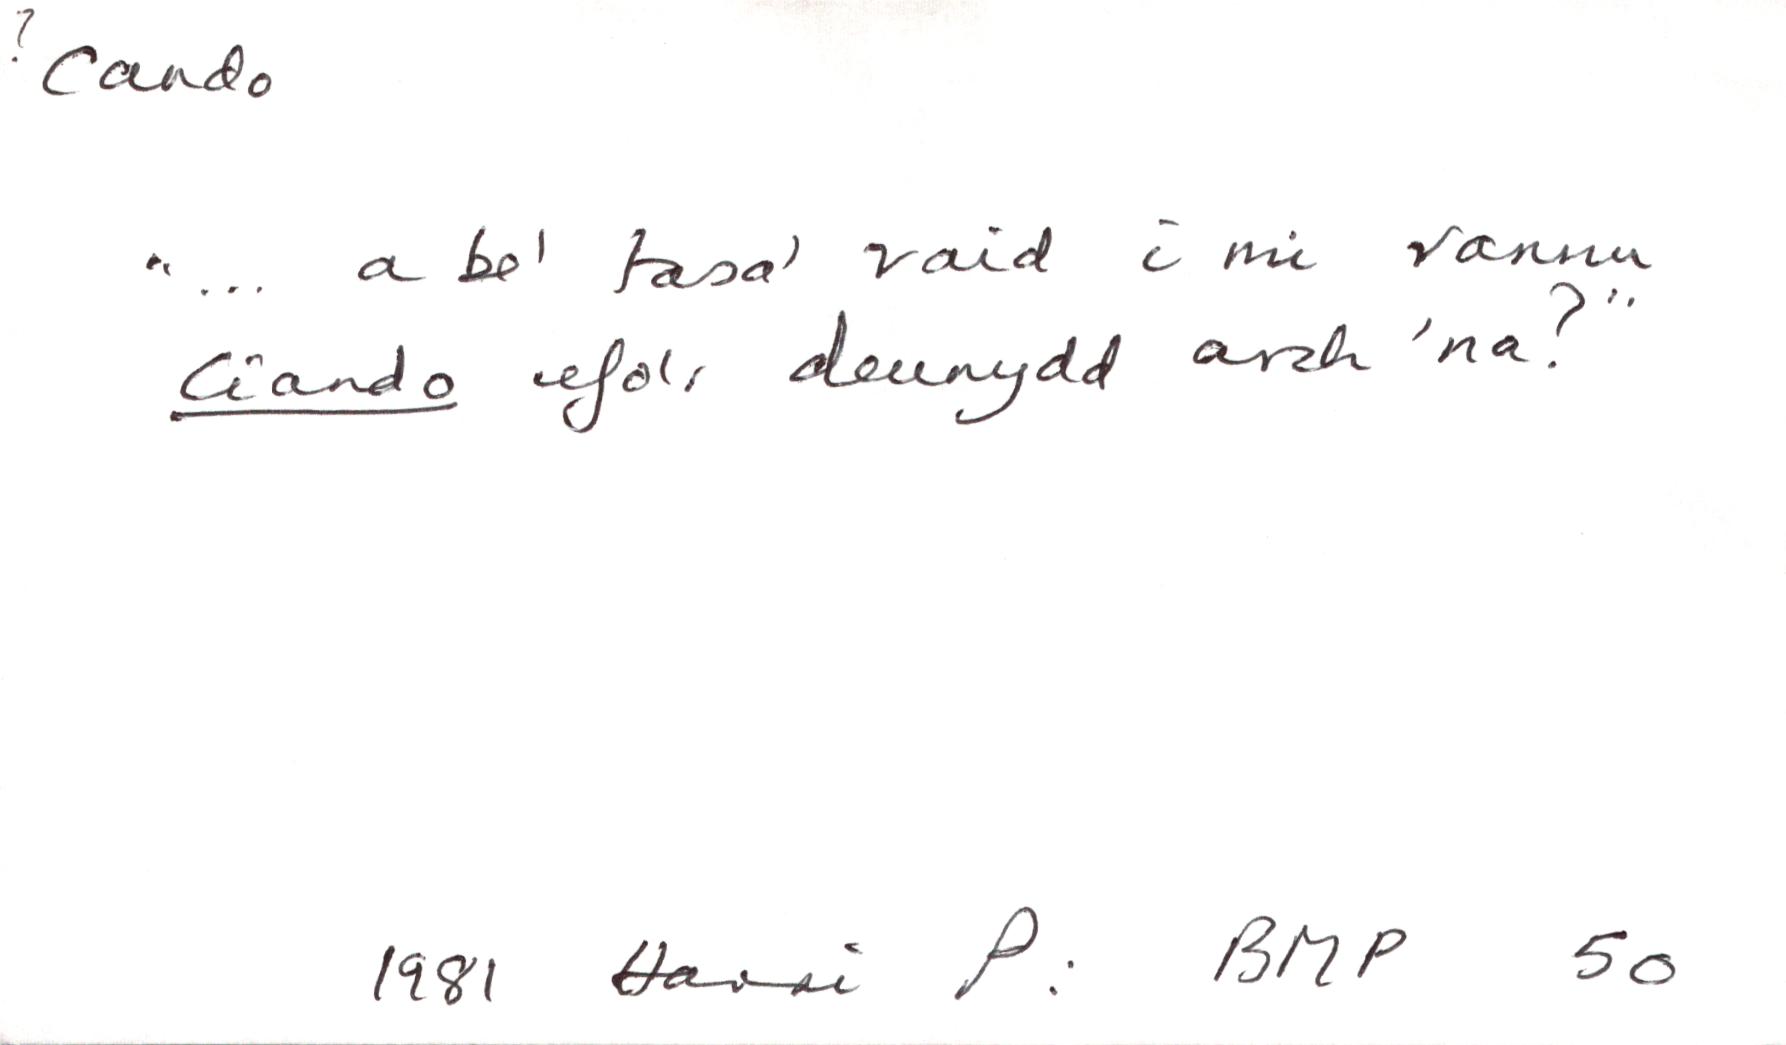 ? Cando
"... a be' tasa' raid i mi rannu
Ciando efo'r deunydd arch 'na?"
1981 Harri P: BMP 50